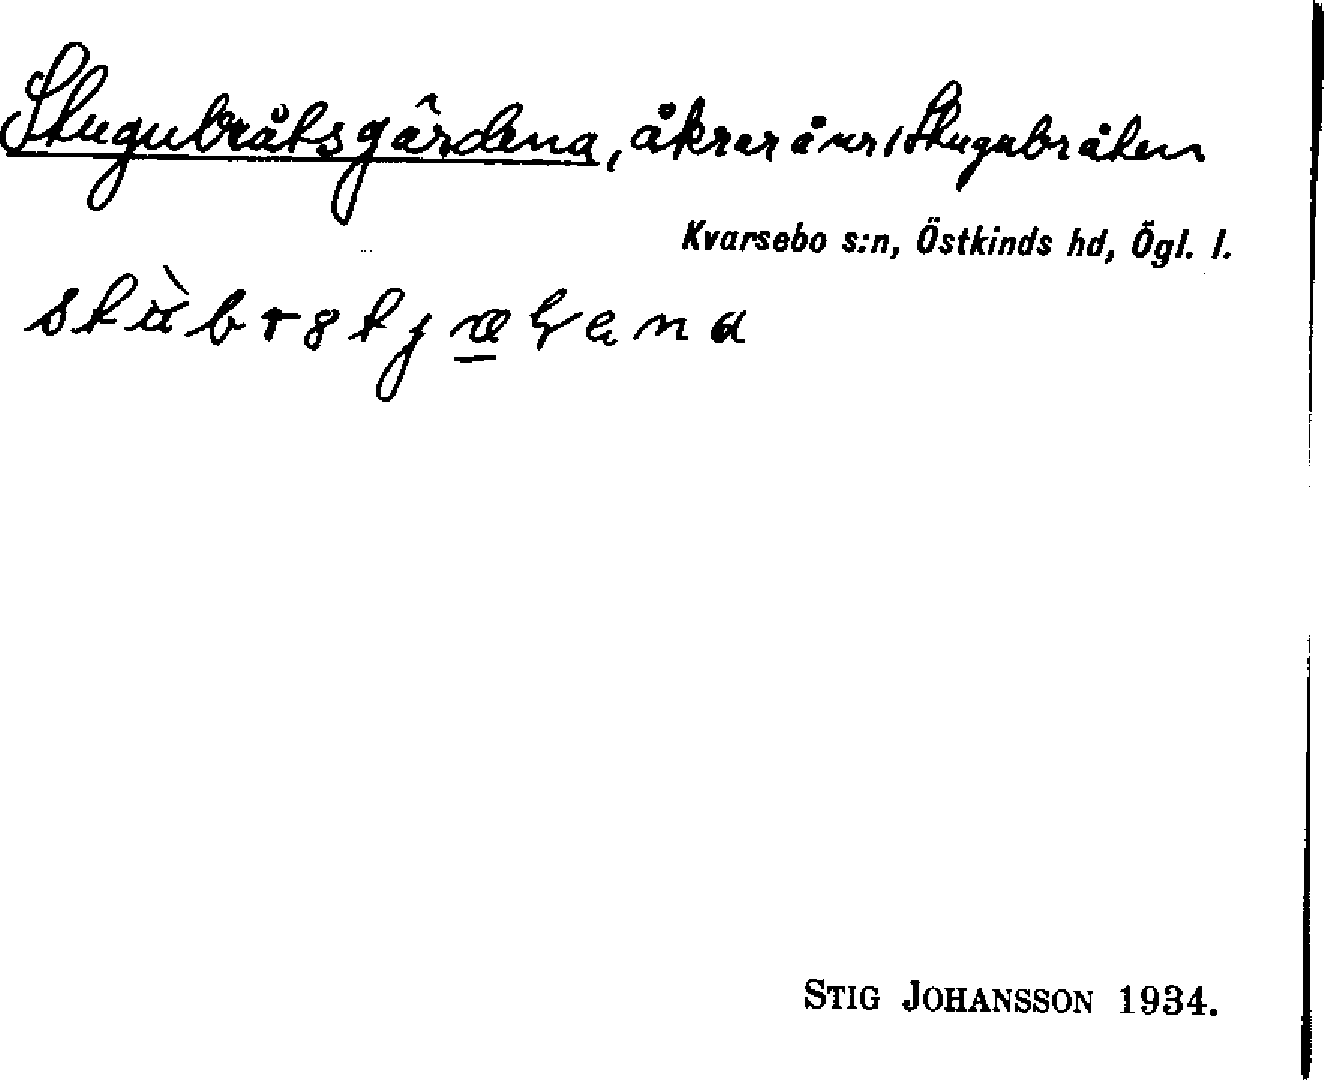 Stugubråtsgärdena, åkrar åner Stugubråten
Kvarsebo s:n, Östkinds hd, Ögl. l.
STIG JOHANSSON 1934.